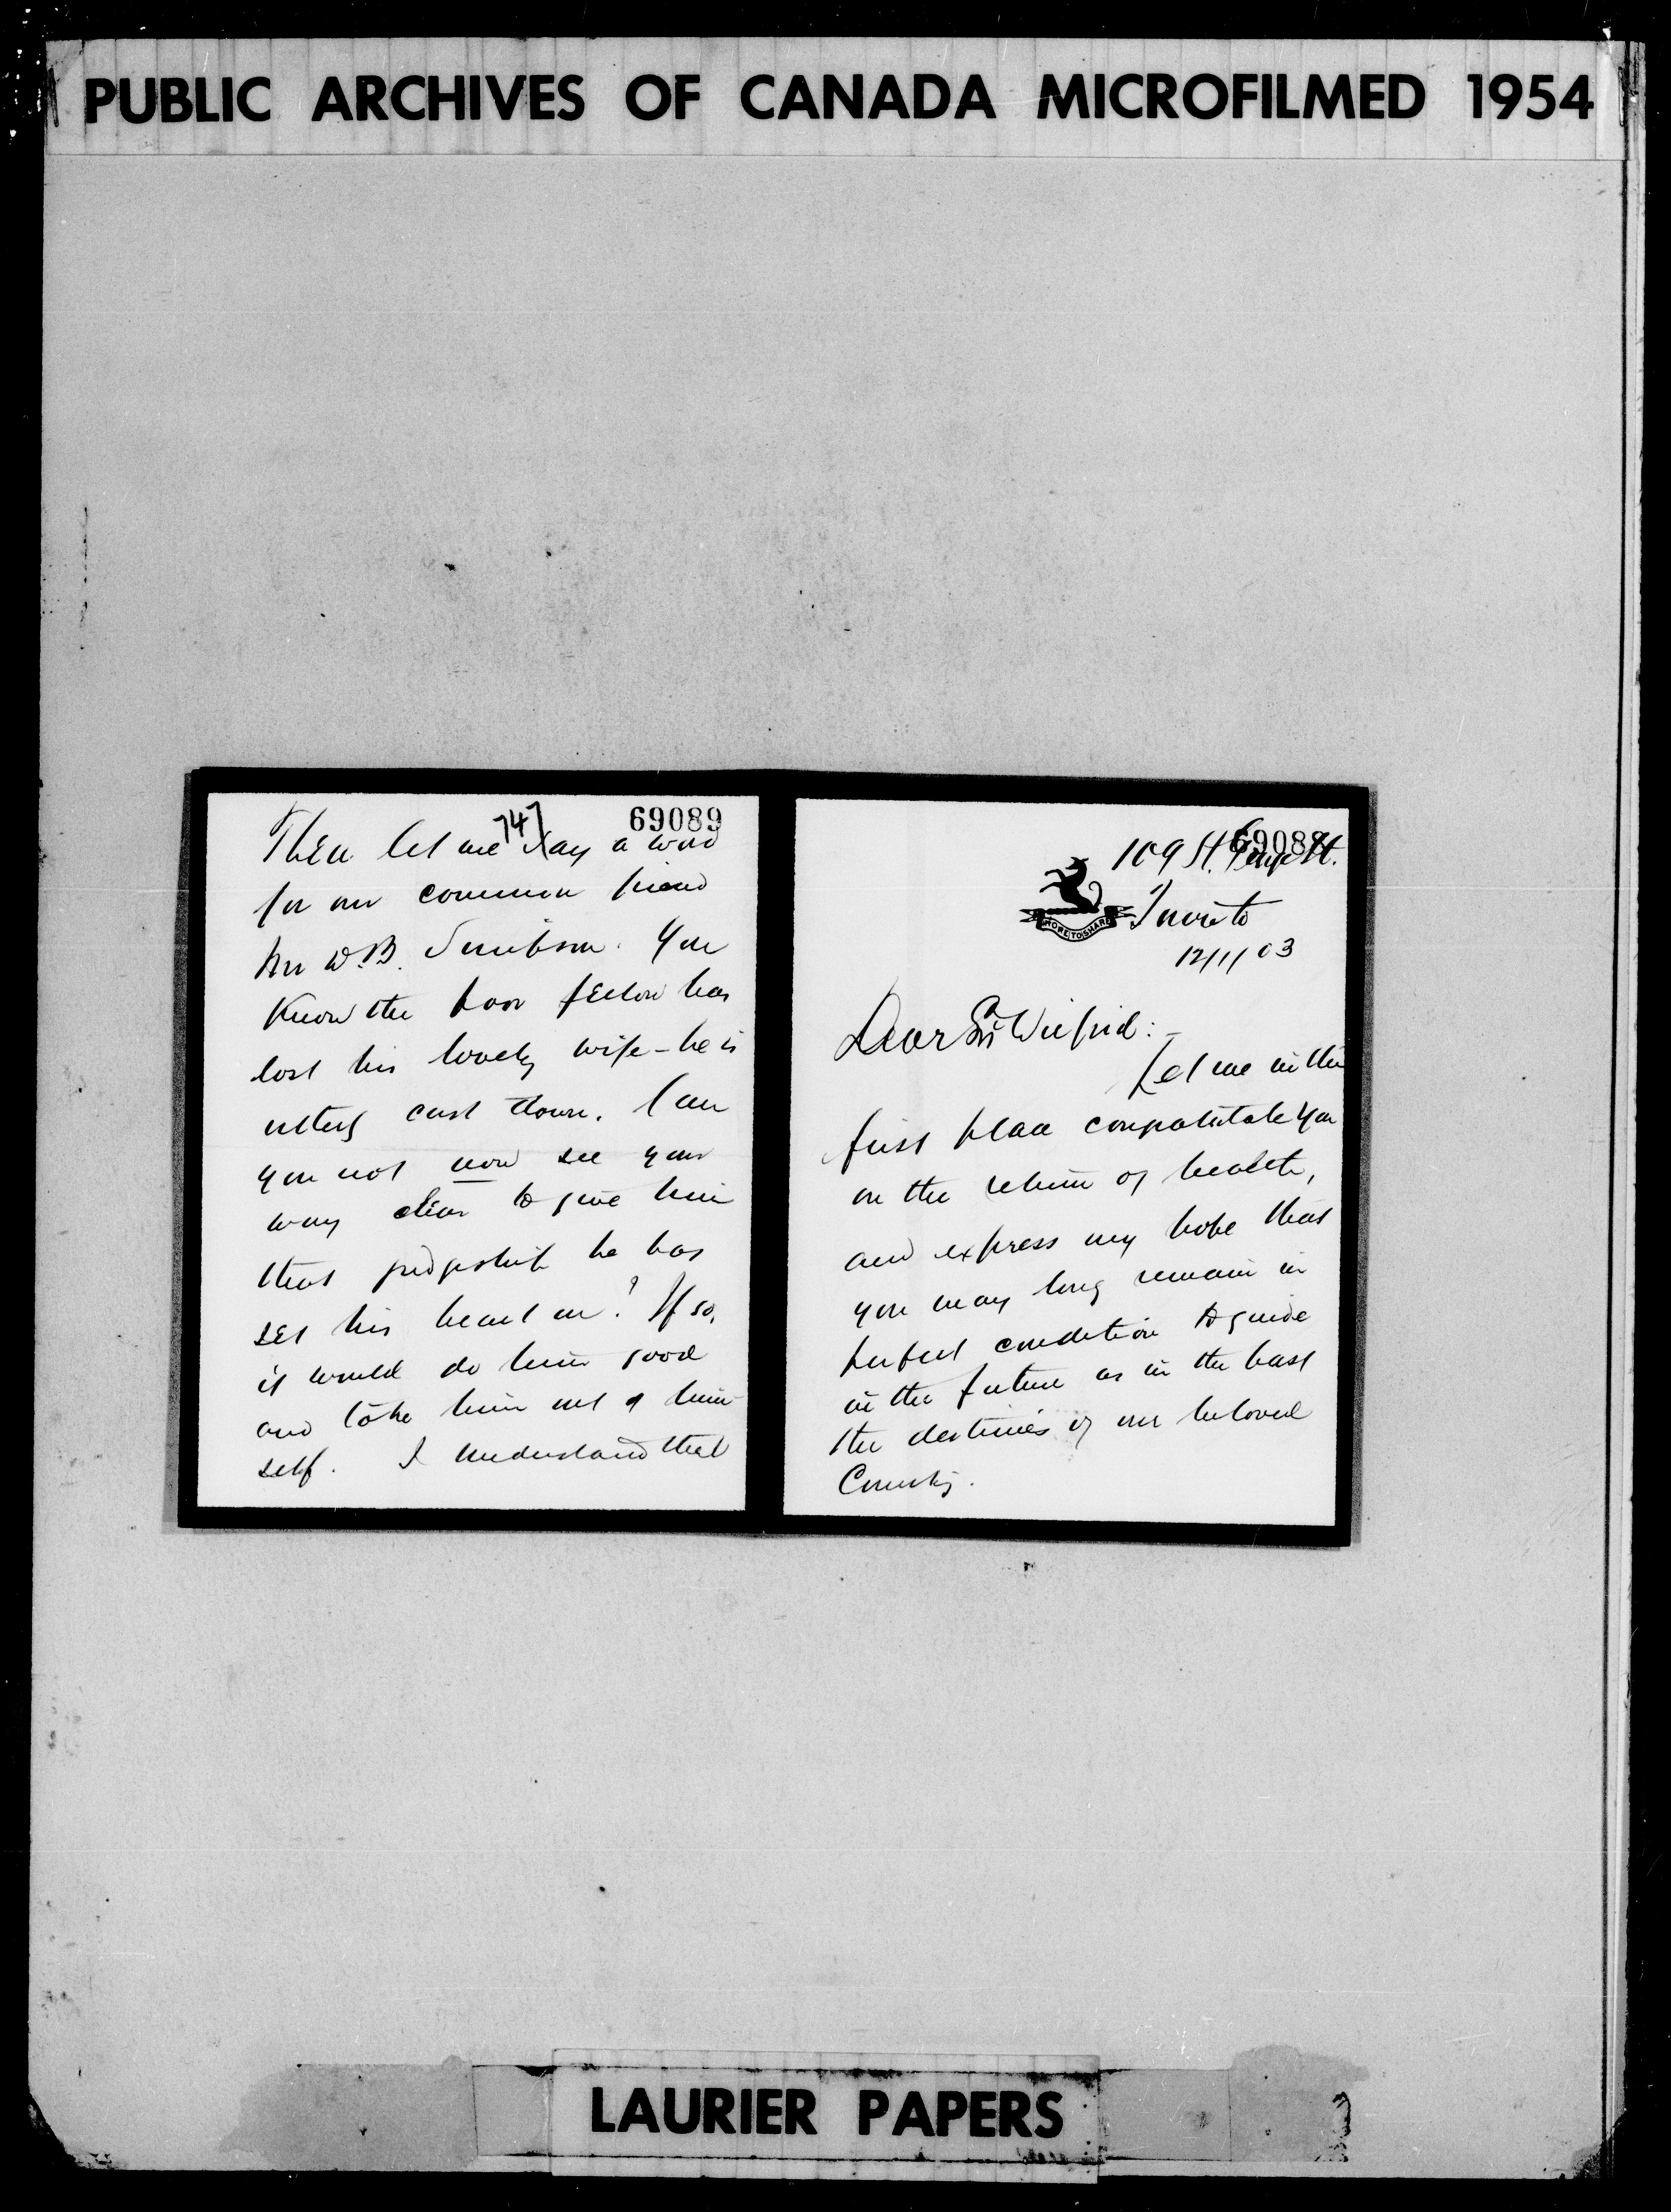 PUBLIC ARCHIVES OF CANADA MICROFILMED 1954
69088
109 St. George St.
HOPE TO SHARE
Toronto
12/1/03
Dear Sir Wilfrid:-
Let me in the
first place congratulate you
on the return of health,
and express my hope that
you may long remain in
perfect condition to guide
in the future as in the past
the destinies of our beloved
Country.
747
69089
Then let me say a word
for our common friend
Mr W.B. Simpson. You
Know the poor fellow has
lost his lovely wife - he is
utterly cast down. Can
you not now see your
way clear to give him
that judgeship he has
set his heart on? If so,
it would do him good
and take him out of him
self. I understand that
LAURIER PAPERS